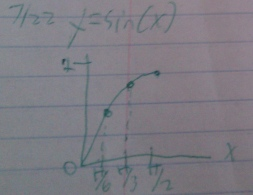 7/22 y=sin(x)
1
0
x
π/6 π/3 π/2